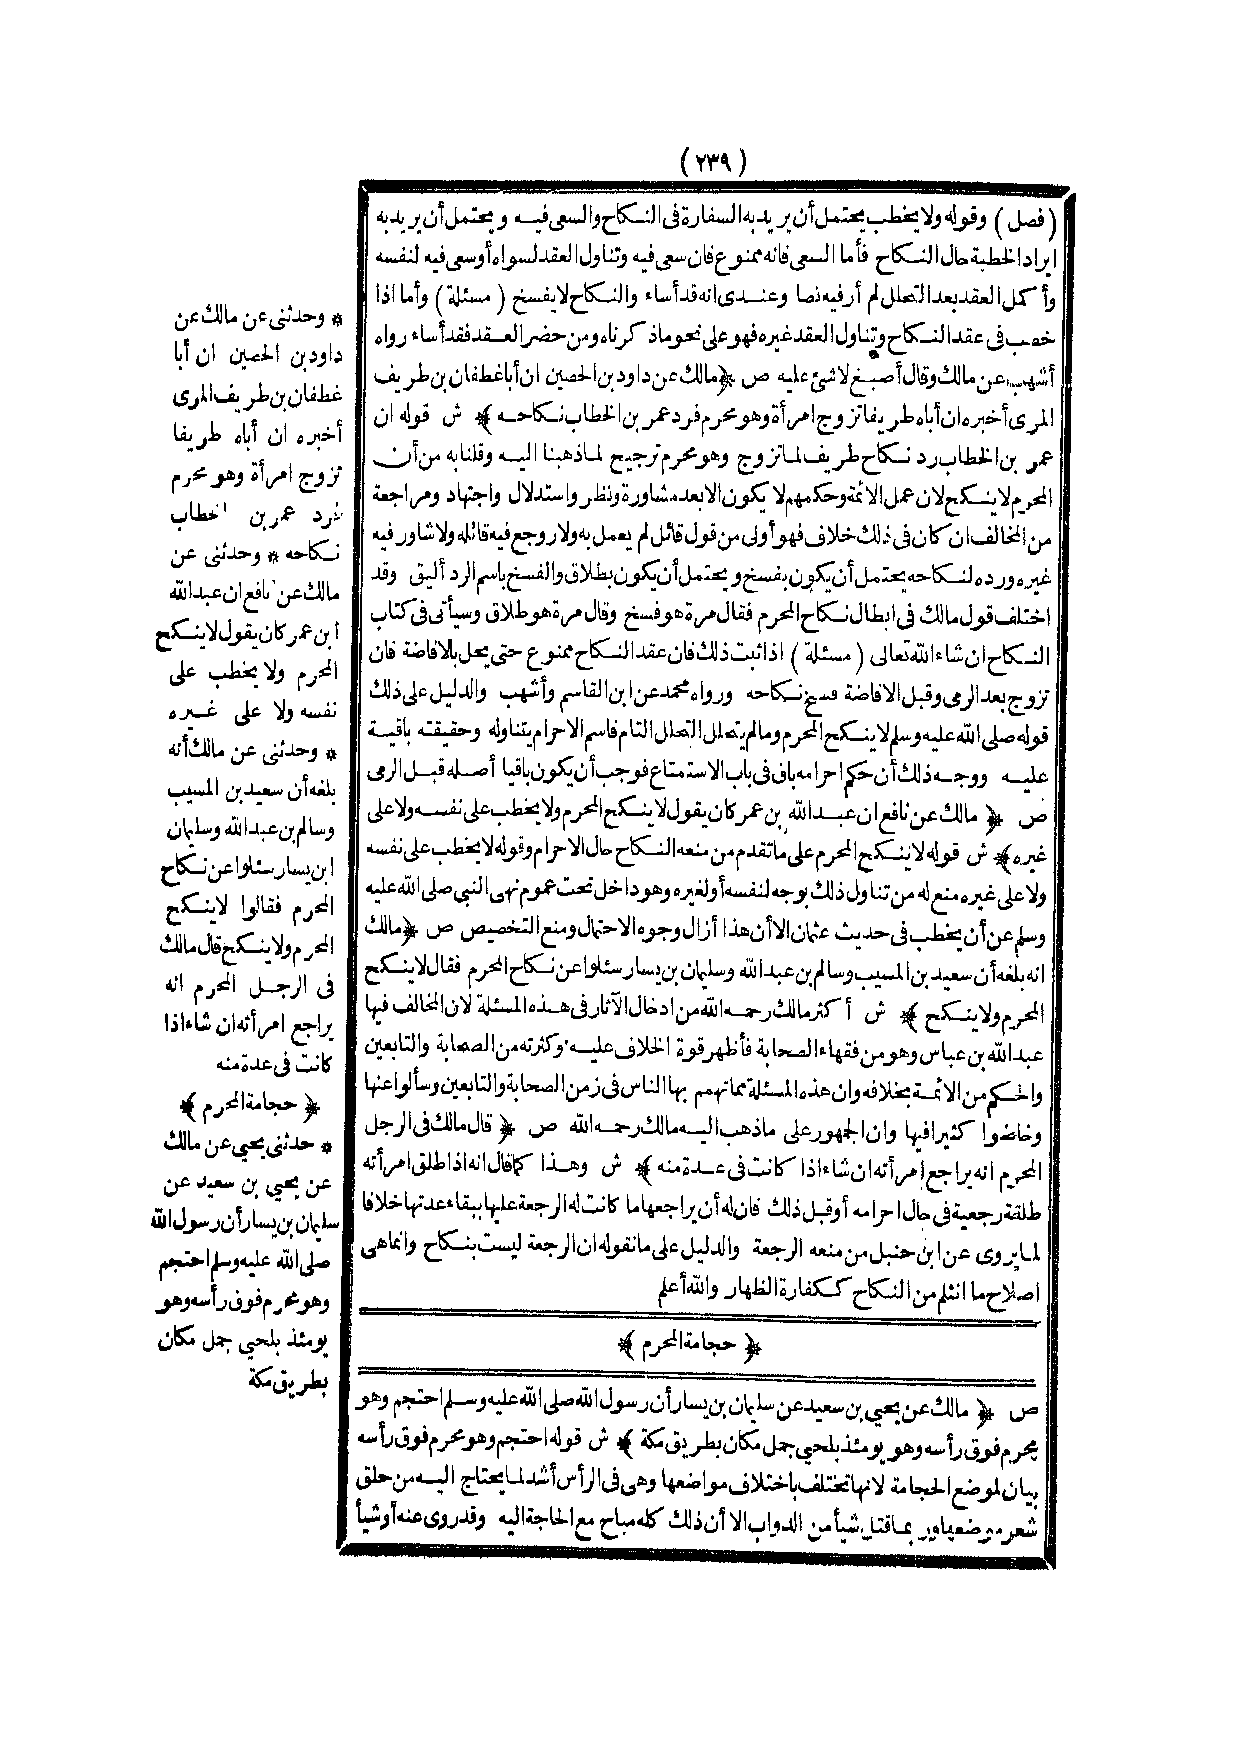 ( ٢٣٩ )
( فصل ) وقوله ولا يخطب يحتمل أن يريد به السفارة فى النكاح والسعى فيه ويحتمل أن يريد به
ايراد الخطبة حال النكاح فأما السعى فانه ممنوع فان سعى فيه وتناول العقد لسواه أو سعى فيه لنفسه
وأكمل العقد بعد التحلل لم أر فيه نصا وعندى انه قد أساء والنكاح لا يفسخ ( مسئلة ) وأما اذا
خطب فى عقد النكاح وتناول العقد غيره فهو على نحو ماذكرناه ومن حضر العقد فقد أساء رواه
أشهب عن مالك وقال أصبغ لا شئ عليه ص ﴿ مالك عن داود بن الحصين ان أبا غطفان بن طريف
المرى أخبره ان أباه طريفا تزوج امرأة وهو محرم فرد عمر بن الخطاب نكاحه ﴾ ش قوله ان
عمر بن الخطاب رد نكاح طريف لما تزوج وهو محرم ترجيح لما ذهبنا اليه وقلنا به من أن
المحرم لا ينكح لان عمل الائمة وحكمهم لا يكون الا بعد مشاورة ونظر واستدلال واجتهاد ومراجعة
من المخالف ان كان فى ذلك خلاف فهو أولى من قول قائل لم يعمل به ولا روجع فيه قائله ولا شاور فيه
غيره ورده لنكاحه يحتمل أن يكون بفسخ ويحتمل أن يكون بطلاق والفسخ باسم الرد أليق وقد
اختلف قول مالك فى ابطال نكاح المحرم فقال مرة هو فسخ وقال مرة هو طلاق وسيأتى فى كتاب
النكاح ان شاء الله تعالى ( مسئلة ) اذا ثبت ذلك فان عقد النكاح ممنوع حتى يحل بالافاضة فان
تزوج بعد الرمى وقبل الافاضة فسخ نكاحه ورواه محمد عن ابن القاسم وأشهب والدليل على ذلك
قوله صلى الله عليه وسلم لا ينكح المحرم ومالم يتحلل التحلل التام فاسم الاحرام يتناوله وحقيقته باقية
عليه ووجه ذلك أن حكم احرامه باق فى باب الاستمتاع فوجب أن يكون باقيا أصله قبل الرمى
ص ﴿ مالك عن نافع ان عبد الله بن عمر كان يقول لا ينكح المحرم ولا يخطب على نفسه ولا على
غيره ﴾ ش قوله لا ينكح المحرم على ماتقدم من منعه النكاح حال الاحرام وقوله لا يخطب على نفسه
ولا على غيره منع له من تناول ذلك بوجه لنفسه أو لغيره وهو داخل تحت عموم نهى النبي صلى الله عليه
وسلم عن أن يخطب فى حديث عثمان الا أن هذا أزال وجوه الاحتمال ومنع التخصيص ص ﴿ مالك
انه بلغه أن سعيد بن المسيب وسالم بن عبد الله وسليمان بن يسار سئلوا عن نكاح المحرم فقال لا ينكح
المحرم ولا ينكح ﴾ ش أكثر مالك رحمه الله من ادخال الآثار فى هذه المسئلة لان المخالف فيها
عبد الله بن عباس وهو من فقهاء الصحابة فأظهر قوة الخلاف عليه وكثرته من الصحابة والتابعين
والحكم من الائمة بخلافه وان هذه المسئلة مما تهمم بها الناس فى زمن الصحابة والتابعين وسألوا عنها
وخاضوا كثيرا فيها وان الجمهور على ماذهب اليه مالك رحمه الله ص ﴿ قال مالك فى الرجل
المحرم انه يراجع امرأته ان شاء اذا كانت فى عدة منه ﴾ ش وهذا كما قال انه اذا طلق امرأته
طلقة رجعية فى حال احرامه أو قبل ذلك فان له أن يراجعها ما كانت له الرجعة عليها ببقاء عدتها خلافا
لما يروى عن ابن حنبل من منعه الرجعة والدليل على مانقوله ان الرجعة ليست بنكاح وانما هى
اصلاح ما انثلم من النكاح ككفارة الظهار والله أعلم
﴿ حجامة المحرم ﴾
ص ﴿ مالك عن يحيي بن سعيد عن سليمان بن يسار أن رسول الله صلى الله عليه وسلم احتجم وهو
محرم فوق رأسه وهو يومئذ بلحيي جمل مكان بطريق مكة ﴾ ش قوله احتجم وهو محرم فوق رأسه
بيان لموضع الحجامة لانها تختلف باختلاف مواضعها وهى فى الرأس أشد لما يحتاج اليه من حلق
شعر موضعها وربما قتل شيأ من الدواب الا أن ذلك كله مباح مع الحاجة اليه وقد روى عنه أو شيأ
* وحدثنى عن مالك عن
داود بن الحصين ان أبا
غطفان بن طريف المرى
أخبره ان أباه طريفا
تزوج امرأة وهو محرم
فرد عمر بن الخطاب
نكاحه * وحدثنى عن
مالك عن نافع ان عبد الله
ابن عمر كان يقول لا ينكح
المحرم ولا يخطب على
نفسه ولا على غيره
* وحدثنى عن مالك أنه
بلغه أن سعيد بن المسيب
وسالم بن عبد الله وسليمان
ابن يسار سئلوا عن نكاح
المحرم فقالوا لا ينكح
المحرم ولا ينكح قال مالك
فى الرجل المحرم انه
يراجع امرأته ان شاء اذا
كانت فى عدة منه
﴿ حجامة المحرم ﴾
* حدثنى يحيي عن مالك
عن يحيي بن سعيد عن
سليمان بن يسار أن رسول الله
صلى الله عليه وسلم احتجم
وهو محرم فوق رأسه وهو
يومئذ بلحيي جمل مكان
بطريق مكة